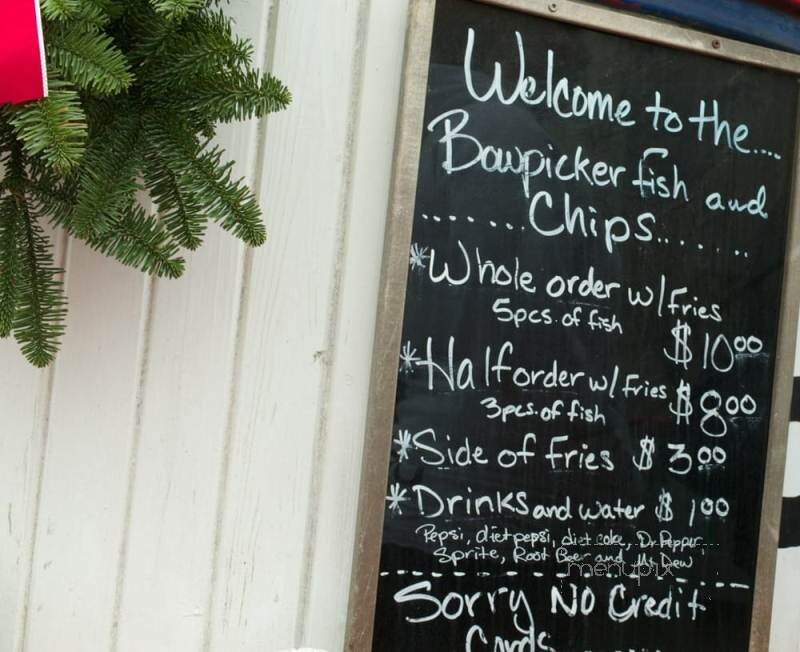 Welcome to the....
Bowpicker fish and
.......Chips.......
*Whole order w/Fries
5pcs. of fish
$10⁰⁰
*Half order w/ Fries $8⁰⁰
3pcs. of fish
*Side of Fries $3⁰⁰
*Drinks and water $1⁰⁰
Pepsi, diet pepsi, diet coke, Dr. Pepper
Sprite, Root Beer and Mt Dew
menupix
Sorry No Credit
Cards